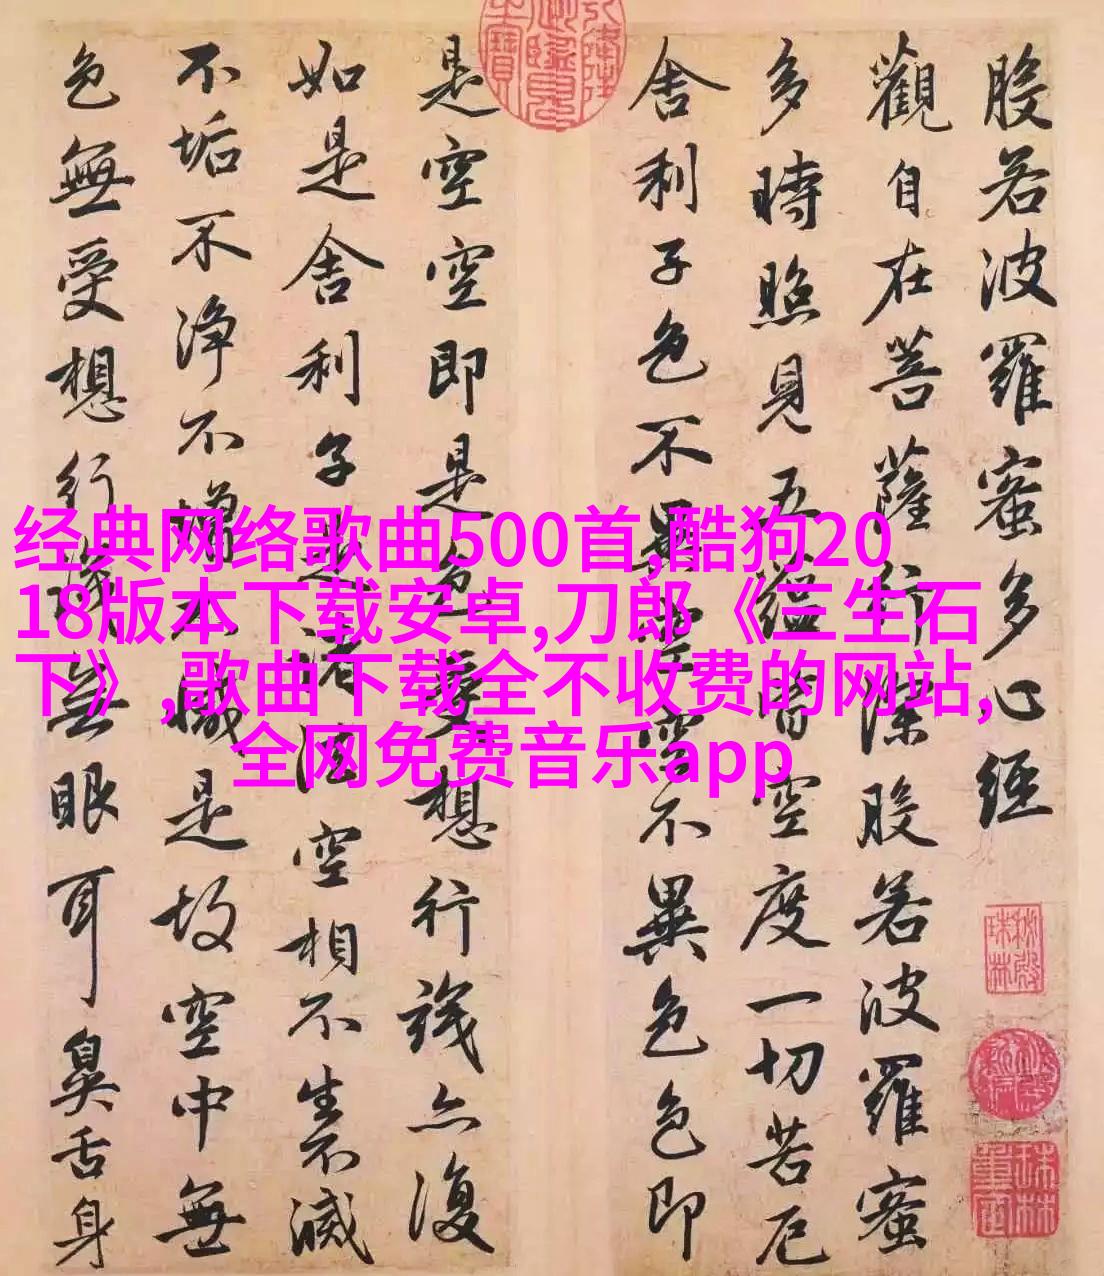 般若波羅蜜多心經
觀自在菩薩行深般若波羅蜜
多時照見五蘊皆空度一切苦厄
舍利子色不異空空不異色色即
是空空即是色受想行識亦復
如是舍利子是諸法空相不生不滅
不垢不淨不增不減是故空中無
色無受想行識無眼耳鼻舌身
经典网络歌曲500首,酷狗20
18版本下载安卓,刀郎《三生石
下》,歌曲下载全不收费的网站,
全网免费音乐app